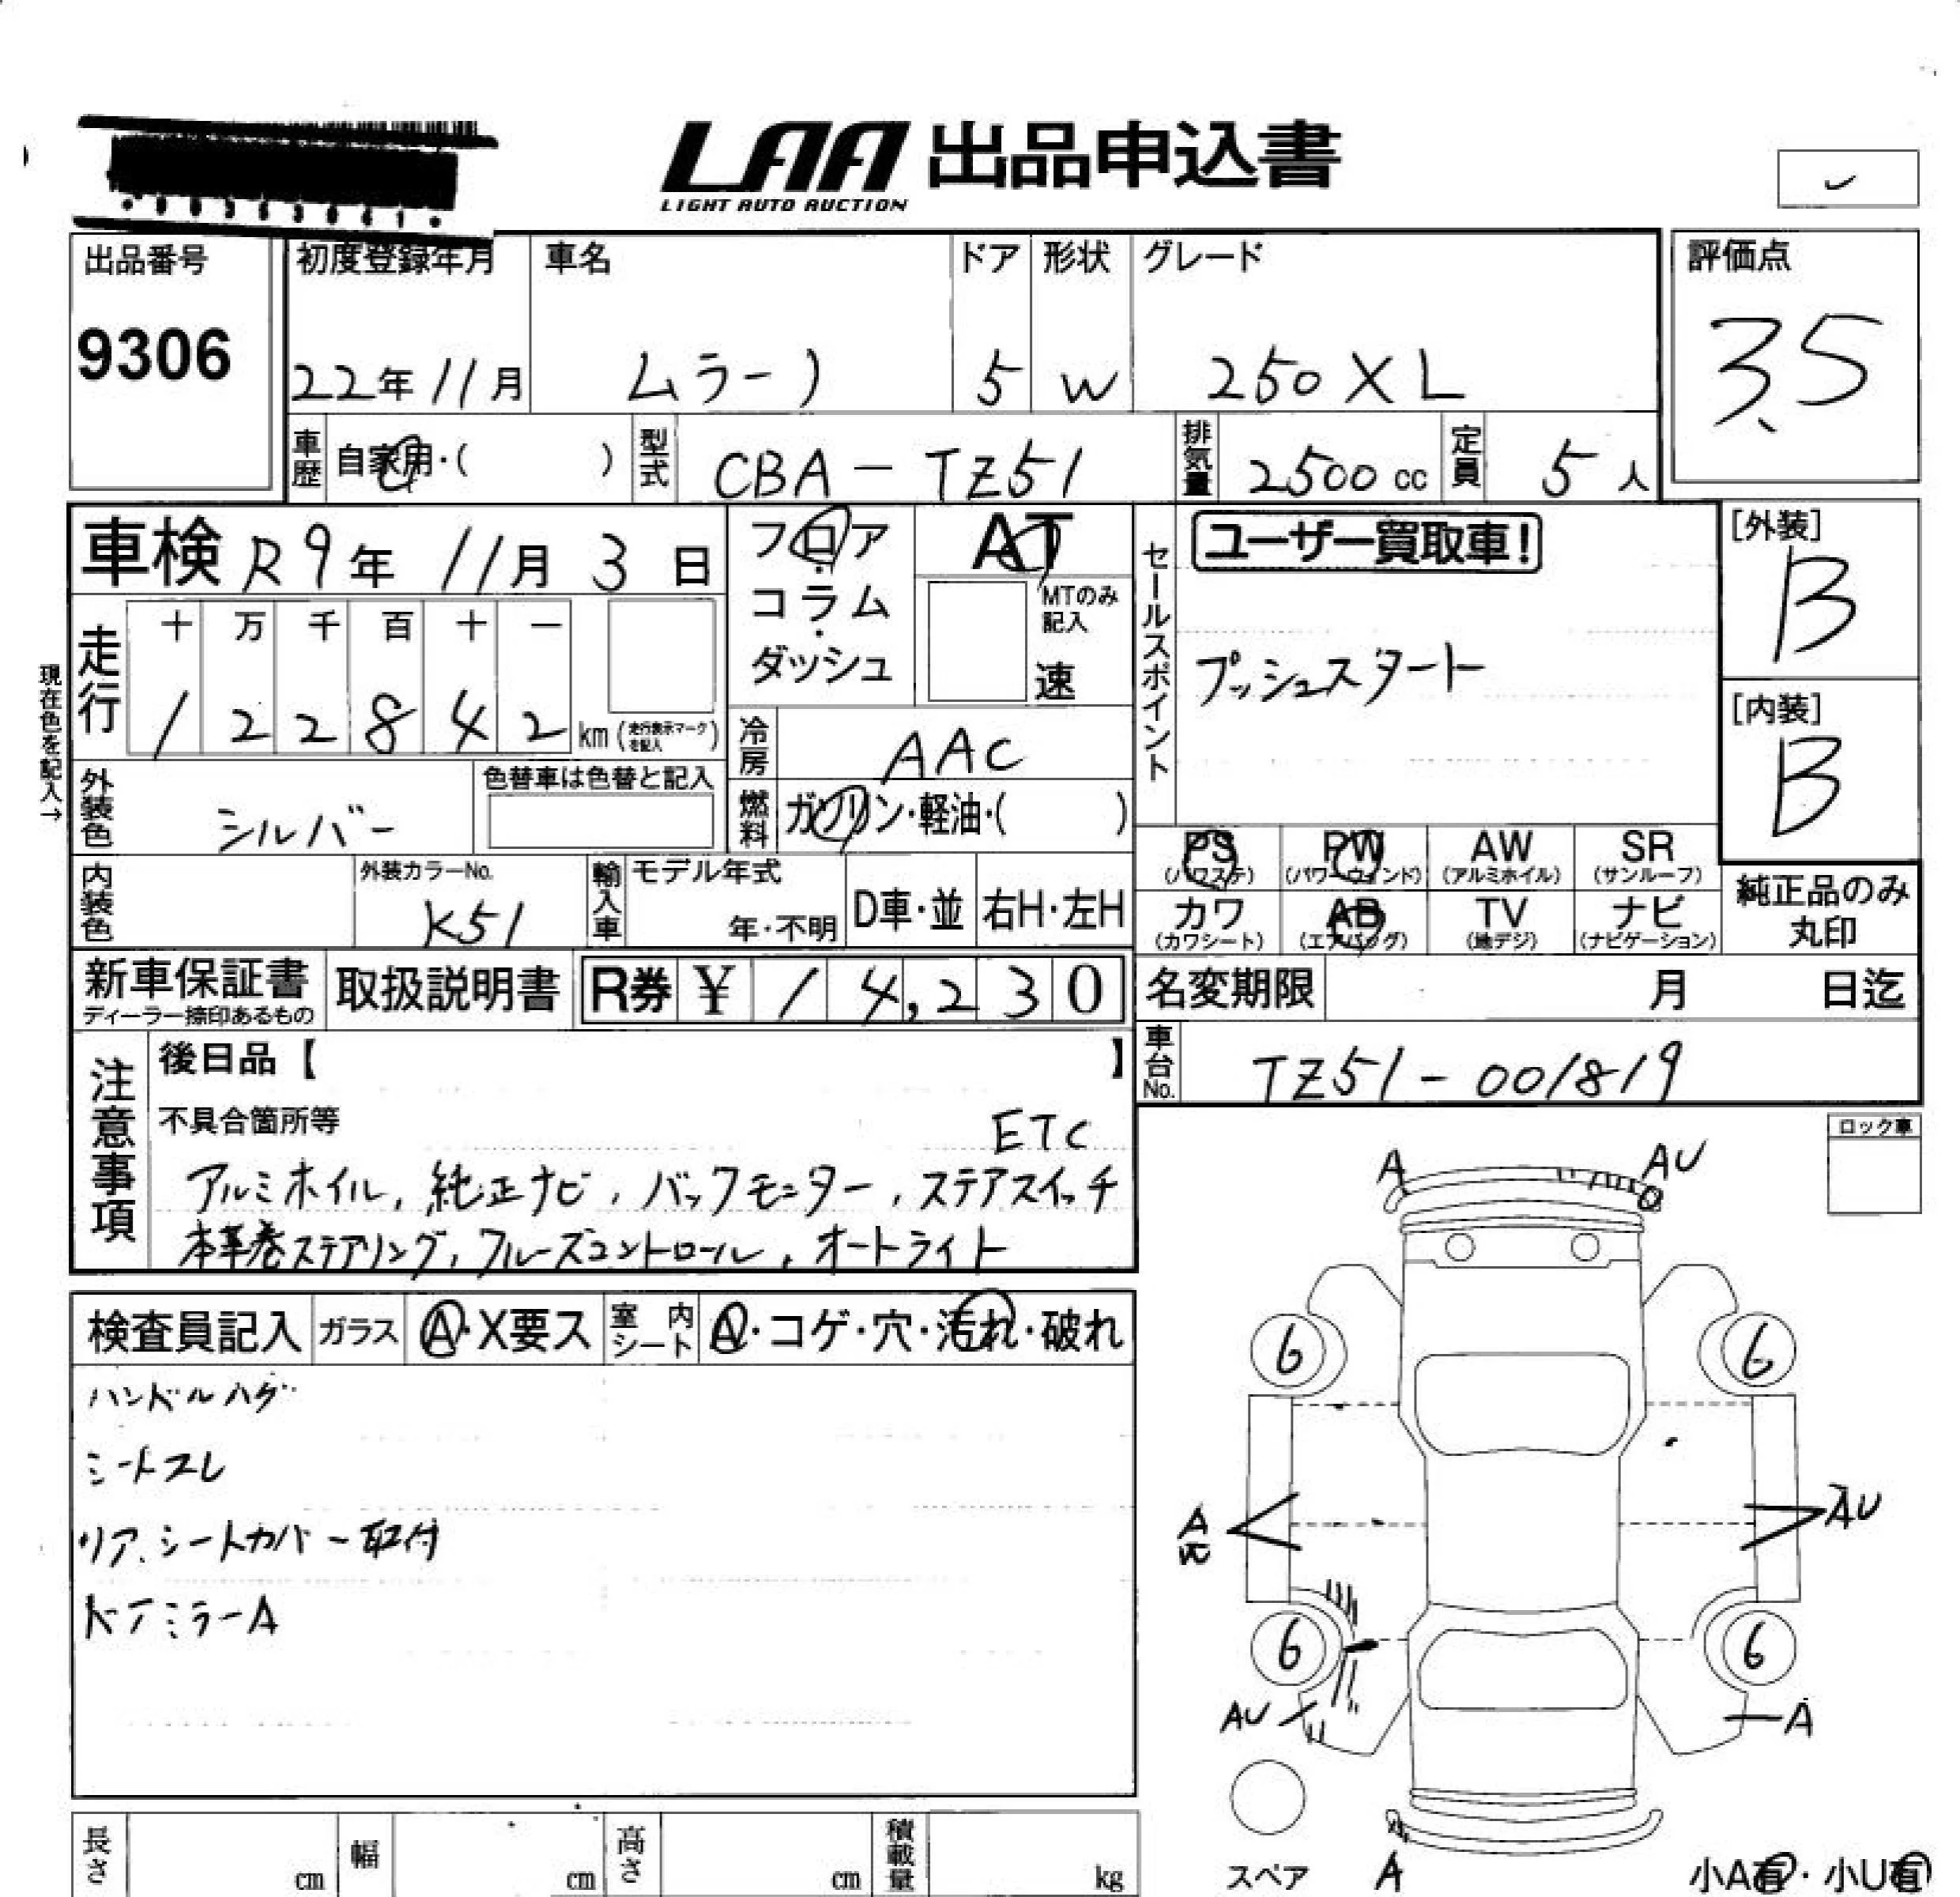 LAA 出品申込書
LIGHT AUTO AUCTION
出品番号
9306
初度登録年月
22年11月
車名
ムラーノ
ドア
5
形状
W
グレード
250XL
評価点
3.5
車歴
自家用・( )
型式
CBA-TZ51
排気量
2500cc
定員
5人
車検 R9年11月3日
フロア
・
コラム
・
ダッシュ
AT
MTのみ
記入
速
セールスポイント
ユーザー買取車!
プッシュスタート
[外装]
B
[内装]
B
現在色を記入→
走行
十 万 千 百 十 一
1 2 2 8 4 2 km (走行表示マークを記入)
冷房
AAC
外装色
シルバー
色替車は色替と記入
燃料
ガソリン・軽油・( )
PS
(パワステ)
PW
(パワーウィンド)
AW
(アルミホイル)
SR
(サンルーフ)
カワ
(カワシート)
AB
(エアバッグ)
TV
(地デジ)
ナビ
(ナビゲーション)
純正品のみ
丸印
内装色
外装カラーNo.
K51
輸入車
モデル年式
年・不明
D車・並
右H・左H
新車保証書
ディーラー捺印あるもの
取扱説明書
R券 ¥ 14,230
名変期限 月 日迄
車台No.
TZ51-001819
注意事項
後日品【 】
不具合箇所等
ETC
アルミホイル, 純正ナビ, バックモニター, ステアスイッチ
本革巻ステアリング, クルーズコントロール, オートライト
ロック車
検査員記入
ガラス
A・X要ス
室内シート
A・コゲ・穴・汚れ・破れ
ハンドルハゲ
シートスレ
リア、シートカバー取付
ドアミラーA
A
AU
6
6
A
AU
6
6
AU
A
スペア
A
小A有・小U有
長さ
cm
幅
cm
高さ
cm
積載量
kg